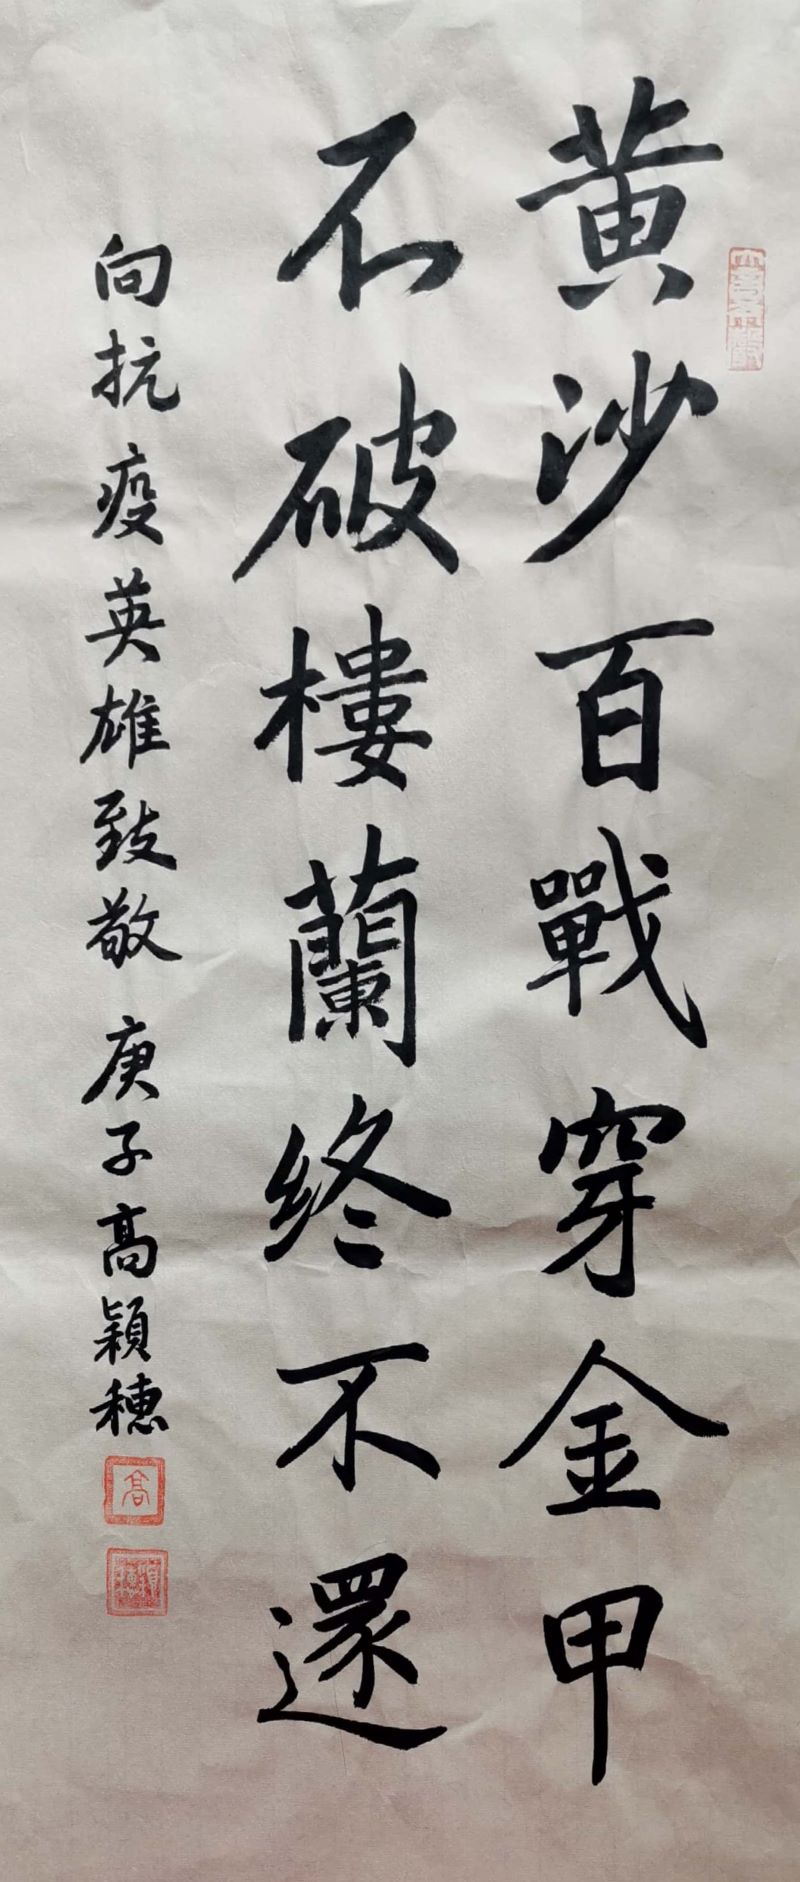 黄沙百戰穿金甲
不破樓蘭終不還
向抗疫英雄致敬 庚子高穎穗
高
穎穗